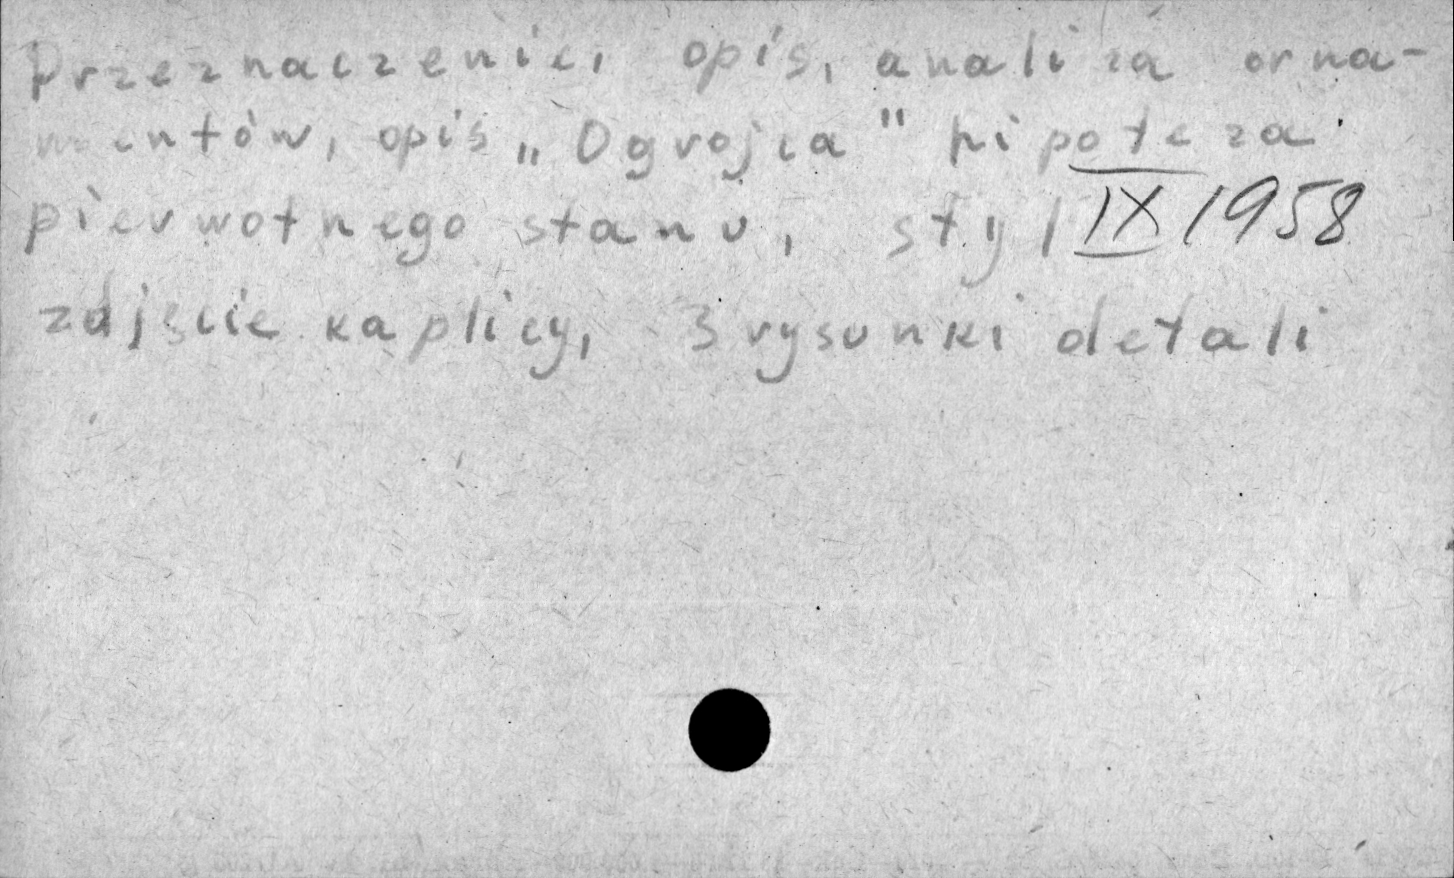 Przeznaczenie, opis, analiza orna-
mentów, opis „Ogrojca" hipoteza
pierwotnego stanu, styl IX 1958
zdjęcie kaplicy, 3 rysunki detali